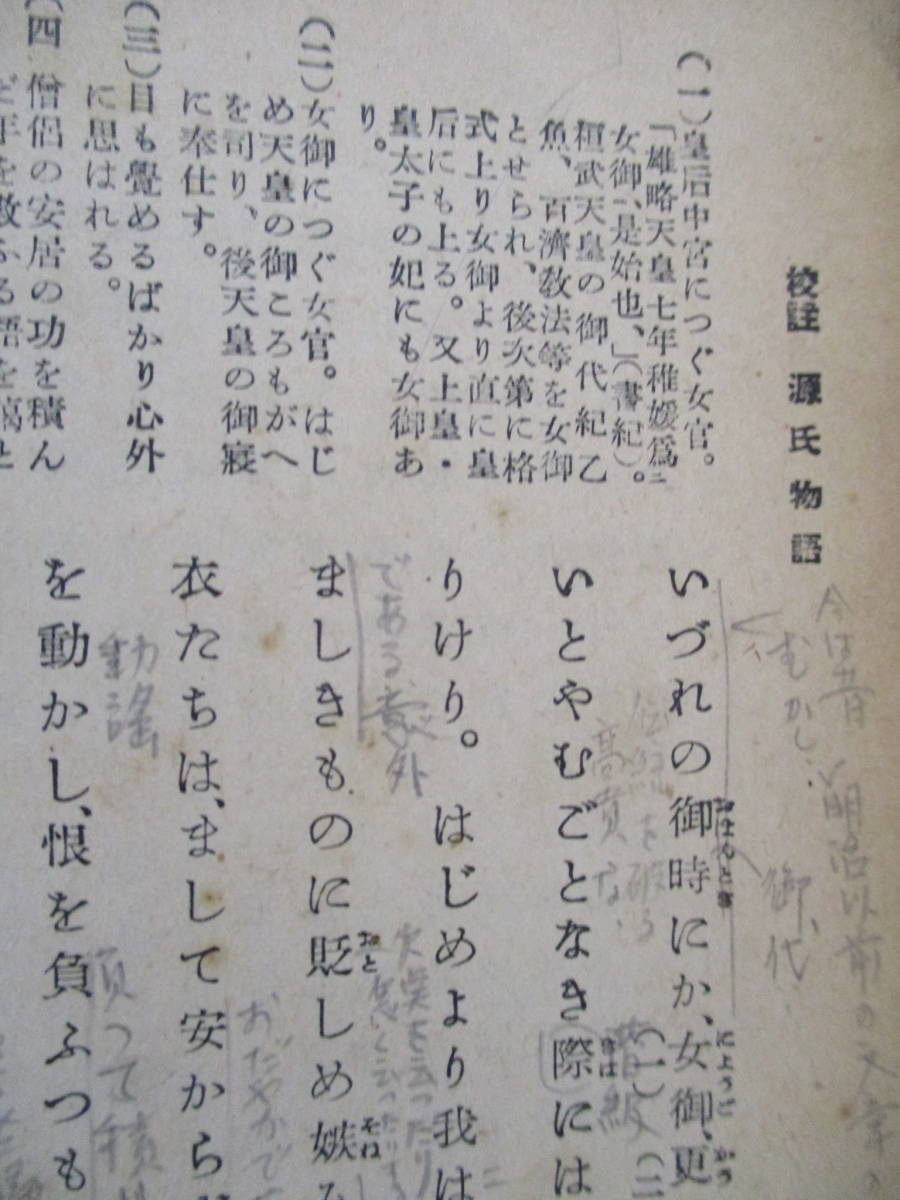 校註 源氏物語
(一)皇后中宮につぐ女官。
「雄略天皇七年稚媛爲ニ
女御、是始也、」(書紀)。
桓武天皇の御代紀乙
魚、百濟敎法等を女御
とせられ、後次第に格
式上り女御より直に皇
后にも上る。又上皇・
皇太子の妃にも女御あ
り。
(二)女御につぐ女官。はじ
め天皇の御ころもがへ
を司り、後天皇の御寢
に奉仕す。
(三)目も覺めるばかり心外
に思はれる。
(四 僧侶の安居の功を積ん
だ年を數ふる語を
今は昔 明治以前の文章の
むかし
御代
いづれの御時にか、女御、更
おほんとき
にようご かう
(一) (二
伝統を破る
高貴な
階級
いとやむごとなき際には
きは
りけり。はじめより我は
である 意外
ましきものに貶しめ嫉み
おと そね
おだやかで
衣たちは、まして安から
動謡
負つて積
を動かし、恨を負ふつも